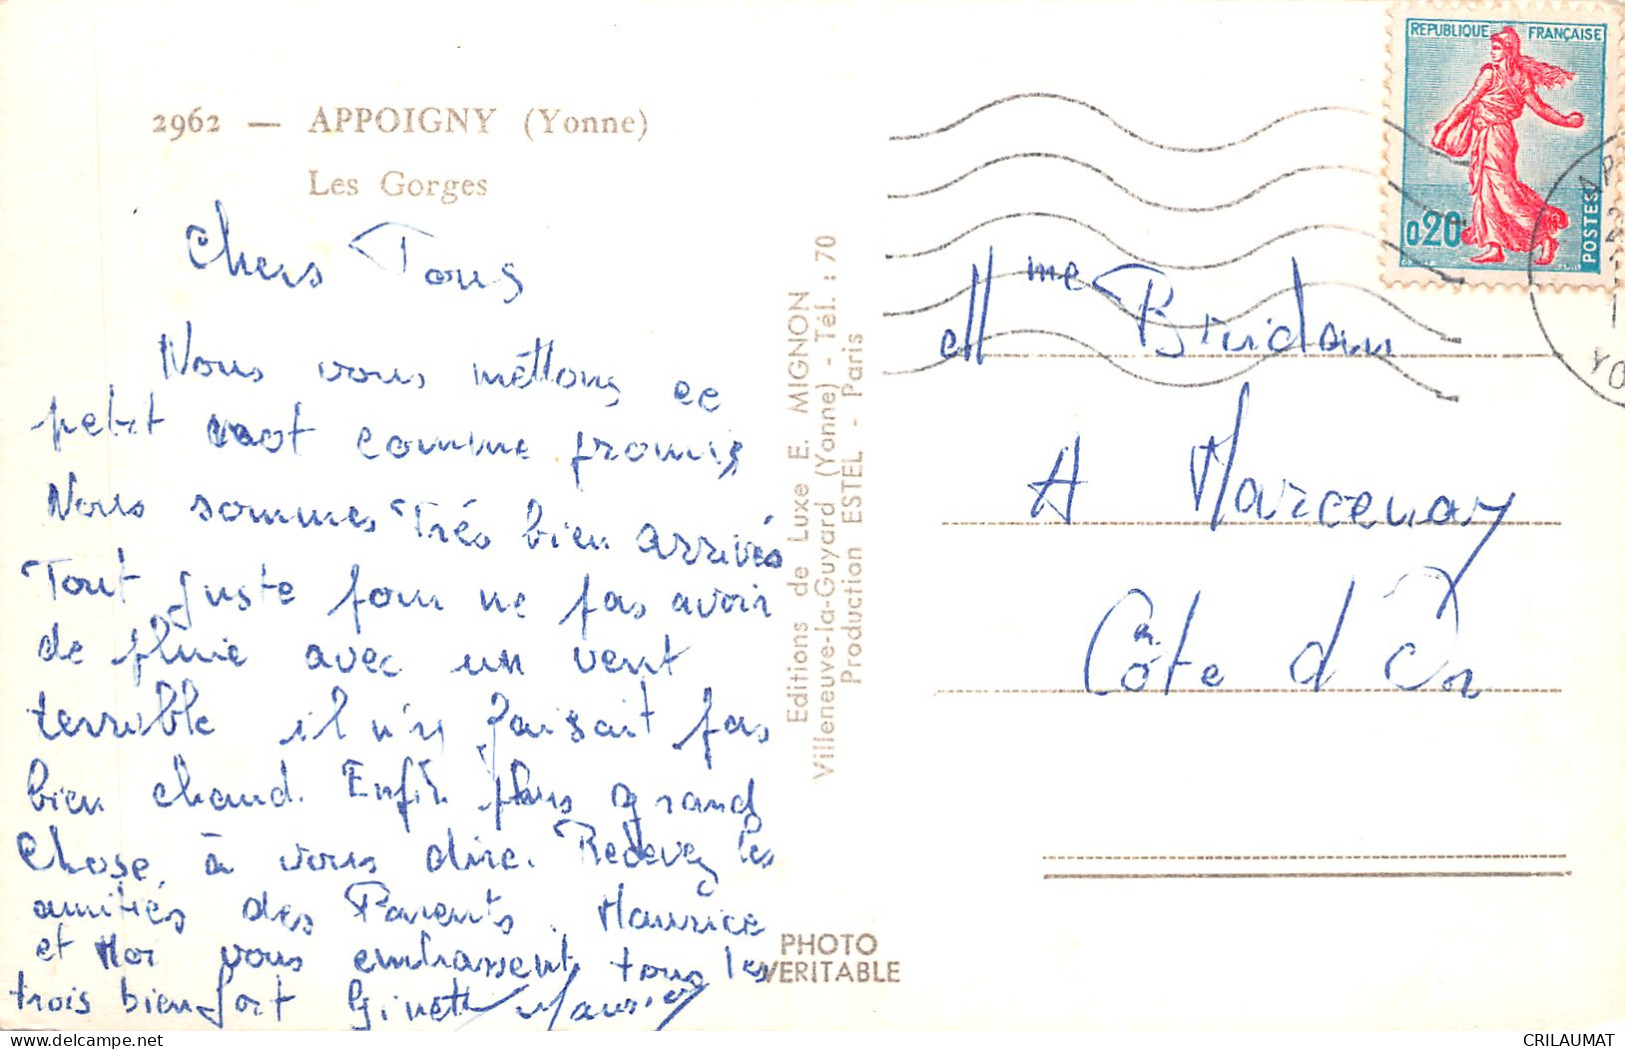 2962 — APPOIGNY (Yonne)
Les Gorges
Chers Tous
Nous vous mettons ce
petit mot comme promis
Nous sommes très bien arrivés
Tout juste pour ne pas avoir
de pluie avec un vent
terrible il n'y faisait pas
bien chaud. Enfin plus grand
Chose, à vous dire. Recevez les
amitiés des Parents. Maurice
et Moi vous embrassent tous les
trois bien fort Ginette Maurice
Editions de Luxe E. MIGNON
Villeneuve-la-Guyard (Yonne) - Tél. : 70
Production ESTEL - Paris
PHOTO
VERITABLE
REPUBLIQUE FRANÇAISE
0,20
POSTES
YO
Mme
A Marcenay
Côte d'Or
delcampe.net
CRILAUMAT